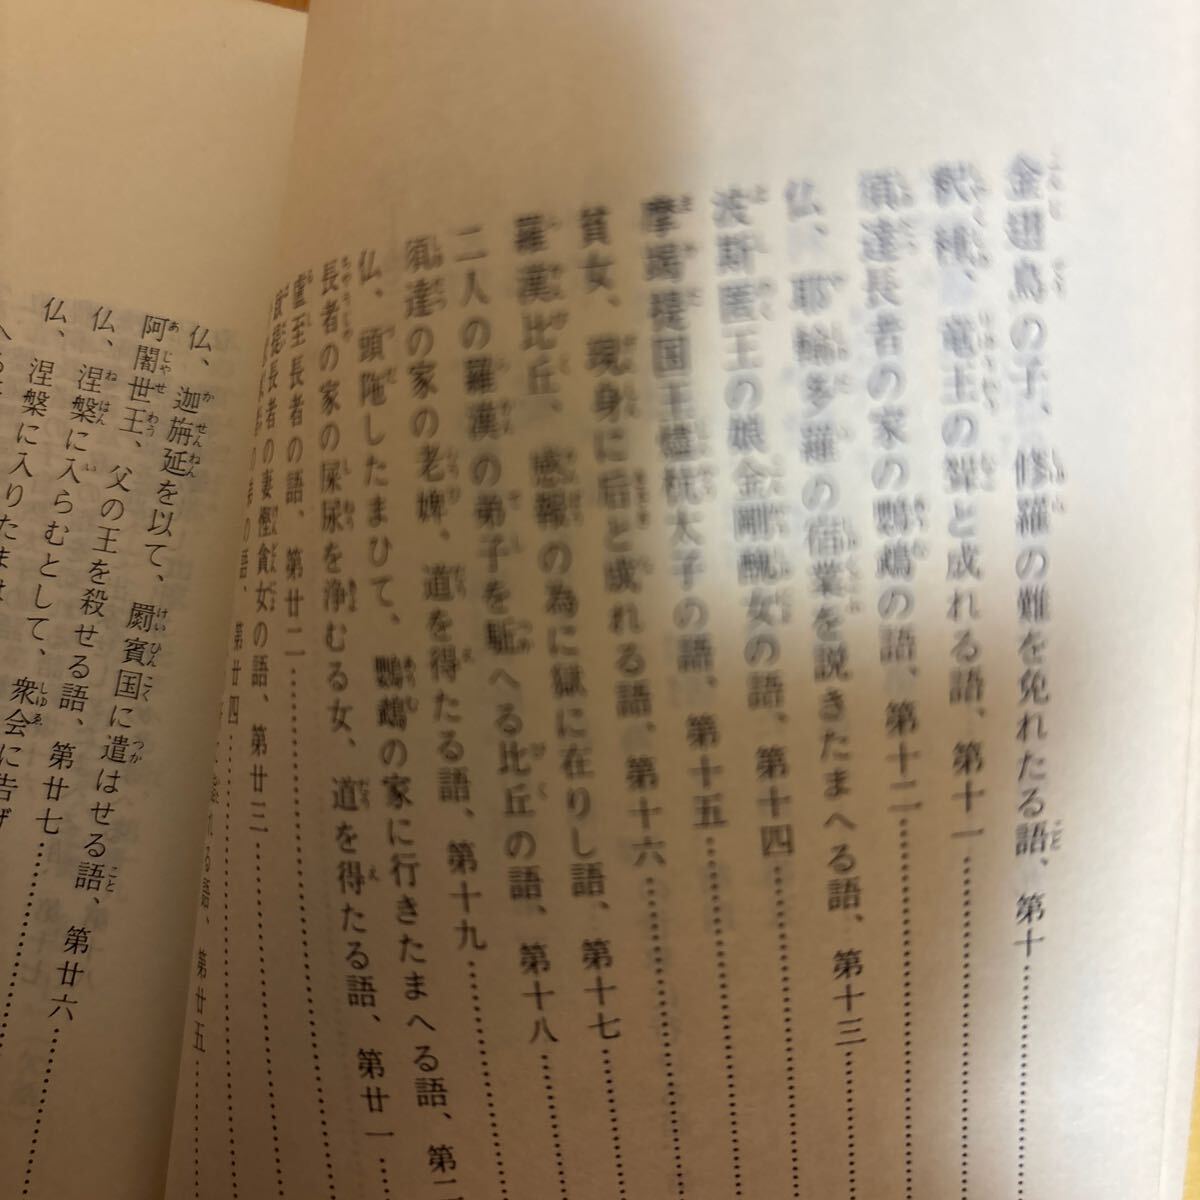 金翅鳥の子、修羅の難を免れたる語、第十
釈種、竜王の聟と成れる語、第十一
須達長者の家の鸚鵡の語、第十二
仏、耶輸多羅の宿業を説きたまへる語、第十三
波斯匿王の娘金剛醜女の語、第十四
摩竭提国王燼杭太子の語、第十五
貧女、現身に后と成れる語、第十六
羅漢比丘、感報の為に獄に在りし語、第十七
二人の羅漢の弟子を駈へる比丘の語、第十八
須達の家の老婢、道を得たる語、第十九
仏、頭陁したまひて、鸚鵡の家に行きたまへる語、第二
長者の家の屎尿を浄むる女、道を得たる語、第廿一
盧至長者の語、第廿二
跋提長者の妻慳貪女の語、第廿三
の語、第廿四
る語、第廿五
仏、迦旃延を以て、罽賓国に遣はせる語、第廿六
阿闍世王、父の王を殺せる語、第廿七
仏、涅槃に入らむとして、衆会に告げ
涅槃に入りたまは